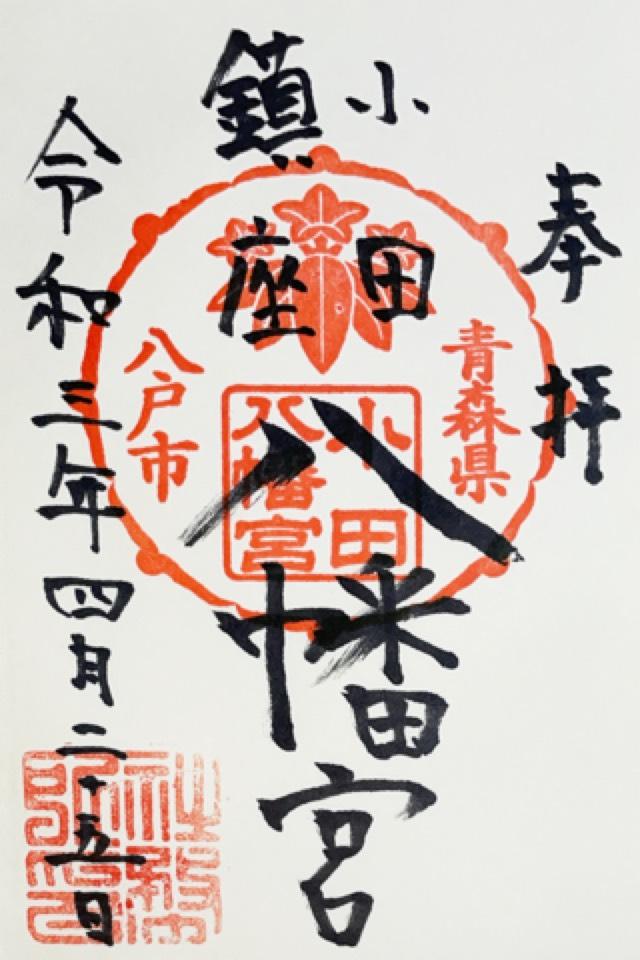 奉拝
小田
鎮座
八幡宮
令和三年四月二十五日
青森県
八戸市
小田
八幡宮
社務
所印